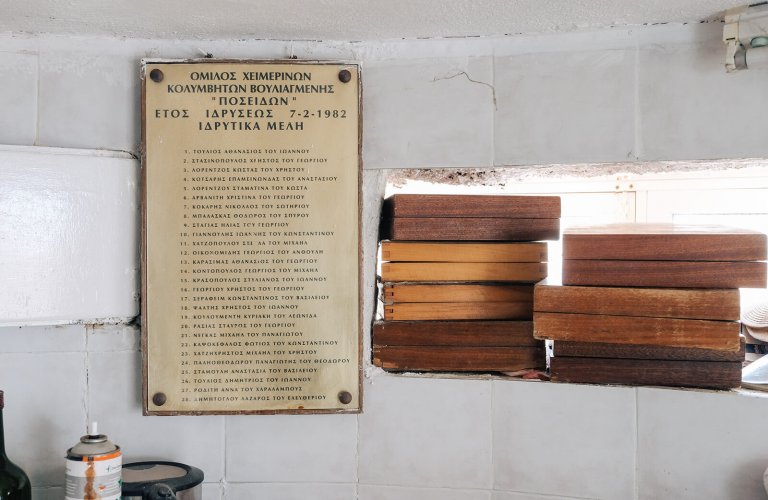 ΟΜΙΛΟΣ ΧΕΙΜΕΡΙΝΩΝ
ΚΟΛΥΜΒΗΤΩΝ ΒΟΥΛΙΑΓΜΕΝΗΣ
"ΠΟΣΕΙΔΩΝ"
ΕΤΟΣ ΙΔΡΥΣΕΩΣ 7-2-1982
ΙΔΡΥΤΙΚΑ ΜΕΛΗ
1. ΤΟΥΛΙΟΣ ΑΘΑΝΑΣΙΟΣ ΤΟΥ ΙΩΑΝΝΟΥ
2. ΣΤΑΣΙΝΟΠΟΥΛΟΣ ΧΡΗΣΤΟΣ ΤΟΥ ΓΕΩΡΓΙΟΥ
3. ΛΟΡΕΝΤΖΟΣ ΚΩΣΤΑΣ ΤΟΥ ΧΡΗΣΤΟΥ
4. ΚΟΤΣΑΡΗΣ ΕΠΑΜΕΙΝΩΝΔΑΣ ΤΟΥ ΑΝΑΣΤΑΣΙΟΥ
5. ΛΟΡΕΝΤΖΟΥ ΣΤΑΜΑΤΙΝΑ ΤΟΥ ΚΩΣΤΑ
6. ΑΡΒΑΝΙΤΗ ΧΡΙΣΤΙΝΑ ΤΟΥ ΓΕΩΡΓΙΟΥ
7. ΚΟΚΑΡΗΣ ΝΙΚΟΛΑΟΣ ΤΟΥ ΣΩΤΗΡΙΟΥ
8. ΜΠΑΛΑΣΚΑΣ ΘΟΔΩΡΟΣ ΤΟΥ ΣΠΥΡΟΥ
9. ΣΤΑΓΙΑΣ ΗΛΙΑΣ ΤΟΥ ΓΕΩΡΓΙΟΥ
10. ΓΙΑΝΝΟΥΛΗΣ ΙΩΑΝΝΗΣ ΤΟΥ ΚΩΝΣΤΑΝΤΙΝΟΥ
11. ΧΑΤΖΟΠΟΥΛΟΥ ΣΤΕΛΛΑ ΤΟΥ ΜΙΧΑΗΛ
12. ΟΙΚΟΝΟΜΙΔΗΣ ΓΕΩΡΓΙΟΣ ΤΟΥ ΑΝΘΟΥΛΗ
13. ΚΑΡΑΣΙΜΑΣ ΑΘΑΝΑΣΙΟΣ ΤΟΥ ΓΕΩΡΓΙΟΥ
14. ΚΟΝΤΟΠΟΥΛΟΣ ΓΕΩΡΓΙΟΣ ΤΟΥ ΜΙΧΑΗΛ
15. ΚΡΑΣΟΠΟΥΛΟΣ ΣΤΥΛΙΑΝΟΣ ΤΟΥ ΙΩΑΝΝΟΥ
16. ΓΕΩΡΓΙΟΥ ΧΡΗΣΤΟΣ ΤΟΥ ΓΕΩΡΓΙΟΥ
17. ΣΕΡΑΦΕΙΜ ΚΩΝΣΤΑΝΤΙΝΟΣ ΤΟΥ ΒΑΣΙΛΕΙΟΥ
18. ΨΑΛΤΗΣ ΧΡΗΣΤΟΣ ΤΟΥ ΙΩΑΝΝΟΥ
19. ΚΟΥΛΟΥΜΕΝΤΗ ΚΥΡΙΑΚΗ ΤΟΥ ΛΕΩΝΙΔΑ
20. ΡΑΣΙΑΣ ΣΤΑΥΡΟΣ ΤΟΥ ΓΕΩΡΓΙΟΥ
21. ΝΕΓΚΑΣ ΜΙΧΑΗΛ ΤΟΥ ΠΑΝΑΓΙΩΤΟΥ
22. ΚΑΨΟΚΕΦΑΛΟΣ ΦΩΤΙΟΣ ΤΟΥ ΚΩΝΣΤΑΝΤΙΝΟΥ
23. ΧΑΤΖΗΧΡΗΣΤΟΣ ΜΙΧΑΗΛ ΤΟΥ ΧΡΗΣΤΟΥ
24. ΠΑΛΗΟΘΕΟΔΩΡΟΣ ΠΑΝΑΓΙΩΤΗΣ ΤΟΥ ΘΕΟΔΩΡΟΥ
25. ΣΤΑΜΟΥΛΗ ΑΝΑΣΤΑΣΙΑ ΤΟΥ ΒΑΣΙΛΕΙΟΥ
26. ΤΟΥΛΙΟΣ ΔΗΜΗΤΡΙΟΣ ΤΟΥ ΙΩΑΝΝΟΥ
27. ΡΟΔΙΤΗ ΑΝΝΑ ΤΟΥ ΧΑΡΑΛΑΜΠΟΥΣ
28. ΔΗΜΗΤΟΓΛΟΥ ΛΑΖΑΡΟΣ ΤΟΥ ΕΛΕΥΘΕΡΙΟΥ